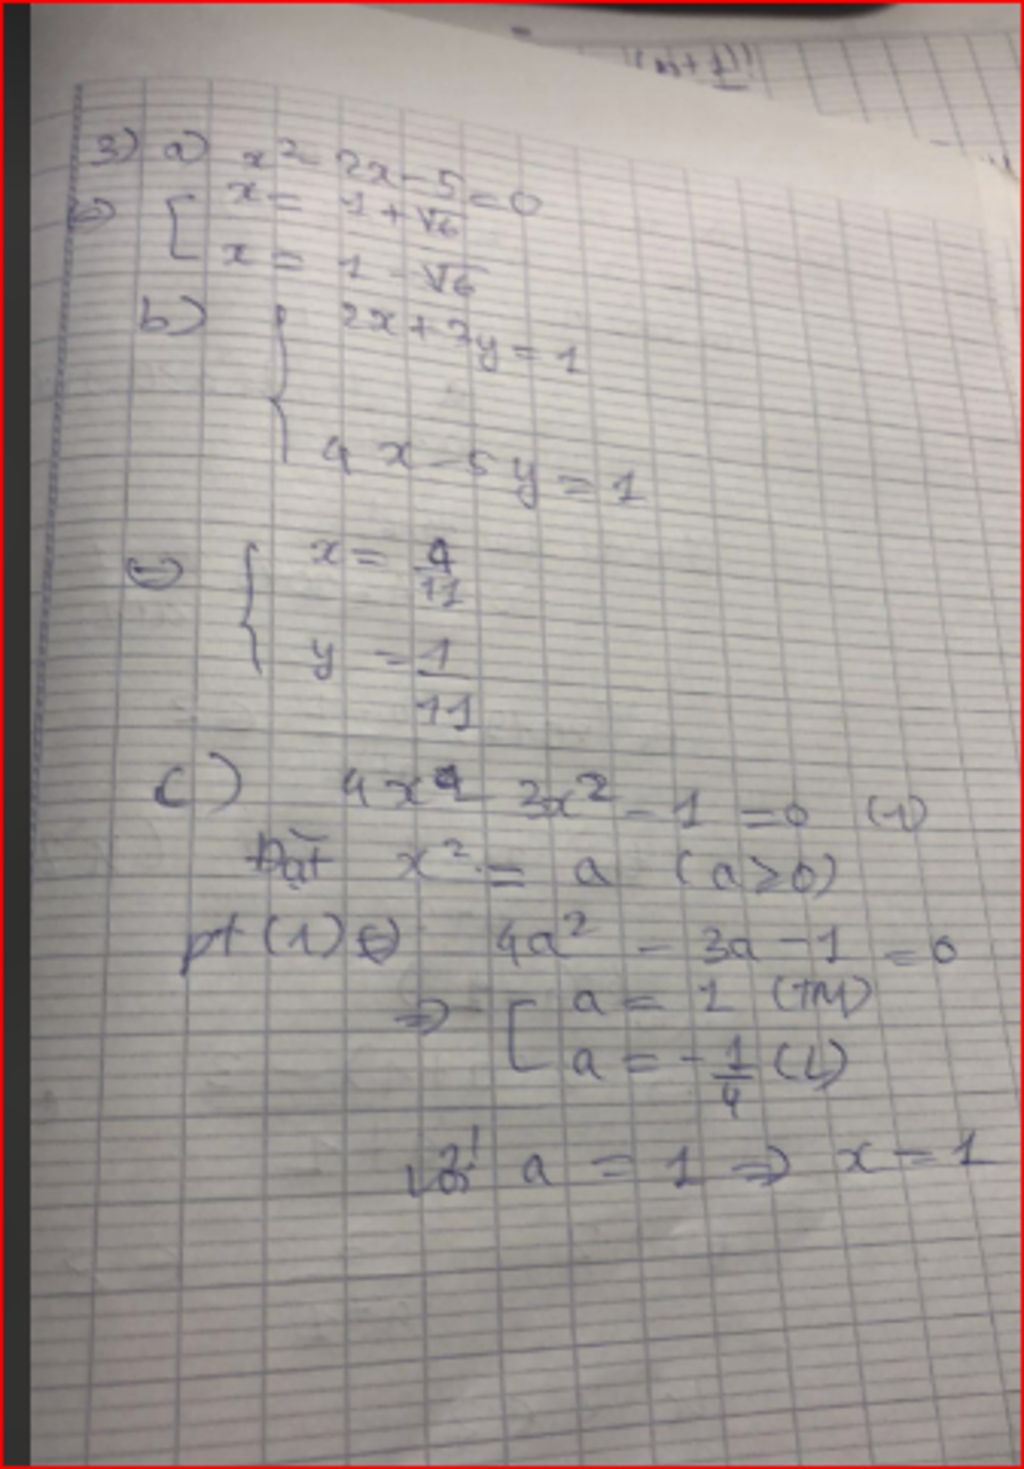 (n+1)!
3) a) x² - 2x - 5 = 0
⇔ [ x = 1 + √6
x = 1 - √6
b) { 2x + 3y = 1
4x - 5y = 1
⇔ { x = 4/11
y = 1/11
c) 4x⁴ - 3x² - 1 = 0 (1)
Đặt x² = a (a ≥ 0)
pt (1) ⇔ 4a² - 3a - 1 = 0
⇒ [ a = 1 (TM)
a = - 1/4 (L)
với a = 1 ⇒ x = 1